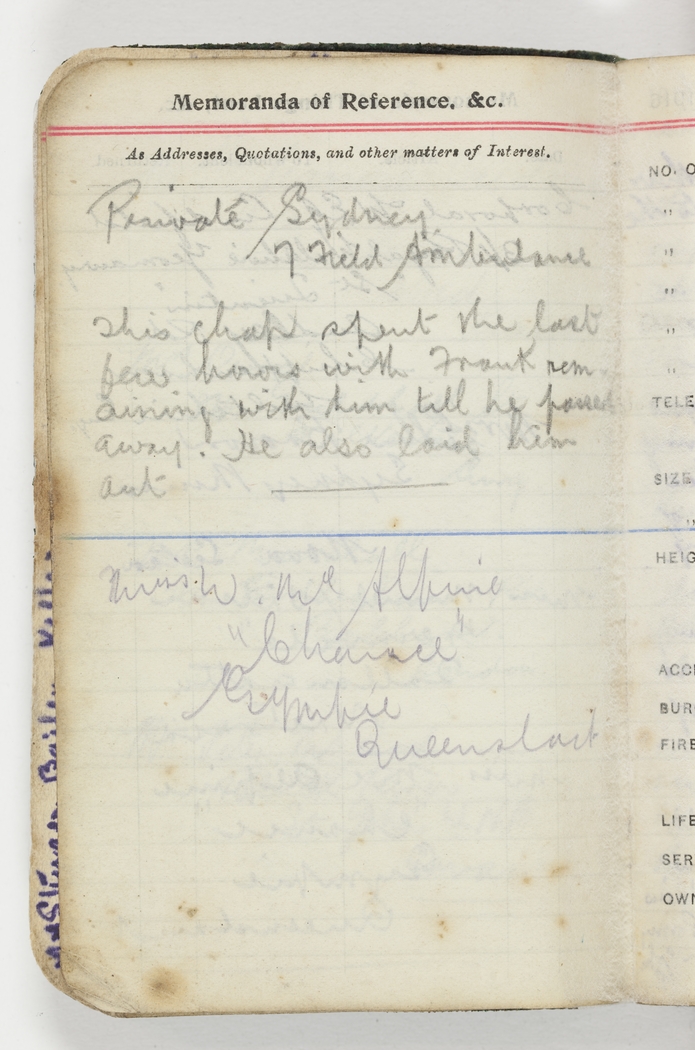 Memoranda of Reference, &c.
As Addresses, Quotations, and other matters of Interest.
Private Sydney
7 Field Ambulance
This chap spent the last
few hours with Frank rem
aining with him till he passed
away. He also laid him
out
Miss W. Mc Alpine
"Chance"
Gympie
Queensland
NO. O
"
"
"
"
"
TELE
SIZE
"
HEIG
ACC
BUR
FIRE
LIFE
SER
OWN